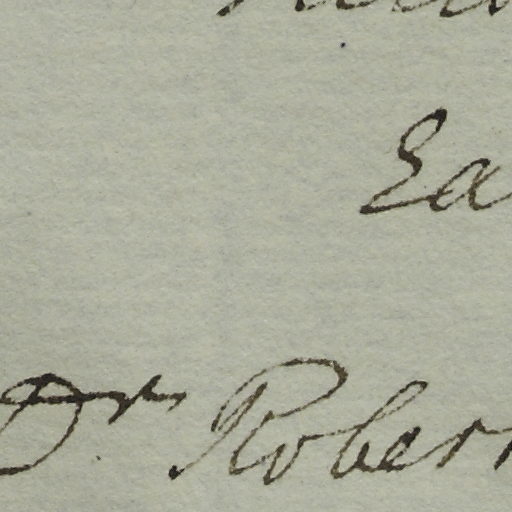 Ea
Dr. Rober